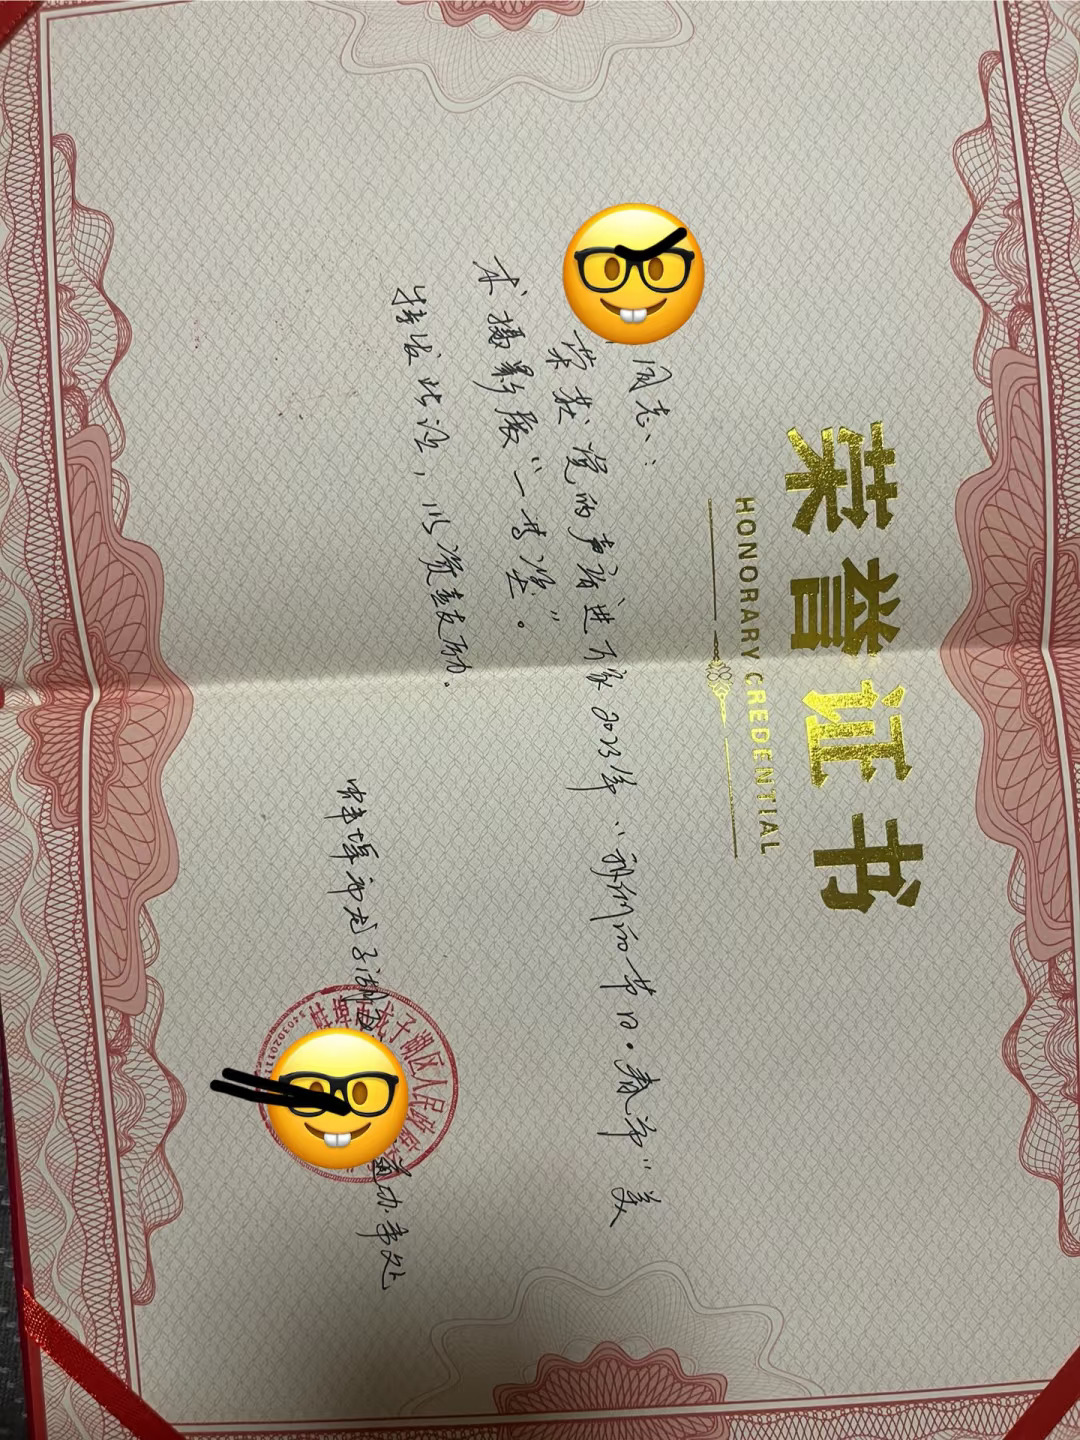 荣誉证书
HONORARY CREDENTIAL
同志:
荣获党的声音进万家2023年“我们的节日·春节”美
术摄影展“一等奖”。
特发此证,以资鼓励。
蚌埠市龙子湖区
道办事处
蚌埠市龙子湖区人民政府